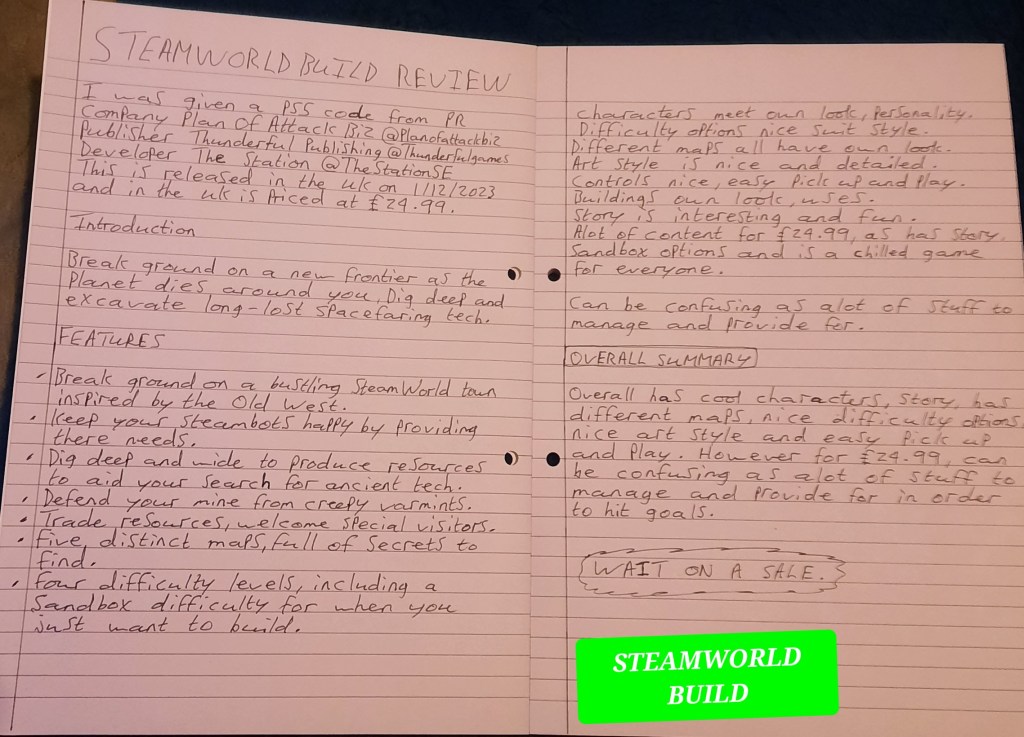 STEAMWORLD BUILD REVIEW
I was given a PS5 code from PR
Company Plan Of Attack Biz @Planofattackbiz
Publisher Thunderful Publishing @Thunderfulgames
Developer The Station @TheStationSE
This is released in the uk on 1/12/2023
and in the uk is Priced at £24.99.
Introduction
Break ground on a new frontier as the
Planet dies around you. Dig deep and
excavate long-lost spacefaring tech.
FEATURES
- Break ground on a bustling SteamWorld town
inspired by the Old West.
• Keep your steambots happy by providing
there needs.
• Dig deep and wide to produce resources
to aid your search for ancient tech.
• Defend your mine from creepy varmints.
• Trade resources, welcome special visitors.
• five, distinct maps, full of secrets to
find.
• four difficulty levels, including a
Sandbox difficulty for when you
just want to build.
Characters meet own look, Personality.
Difficulty options nice suit style.
Different maps all have own look.
Art Style is nice and detailed.
Controls nice, easy Pick up and Play.
Buildings own look, uses.
Story is interesting and fun.
Alot of content for £24.99, as has story,
Sandbox options and is a chilled game
for everyone.
Can be confusing as alot of stuff to
manage and provide for.
OVERALL SUMMARY
Overall has cool characters, Story, has
different maps, nice difficulty options,
nice art style and easy Pick up
and Play. However for £24.99, can
be confusing as alot of stuff to
manage and Provide for in order
to hit goals.
WAIT ON A SALE.
STEAMWORLD
BUILD